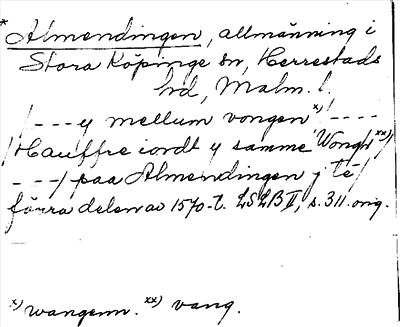 * Almendingen, allmänning i
Stora Köpinge sn, Herrestads
hd, Malm. l.
/---y mellum vongen x)/----
/Hauffre iordt y samme Wongh xx)/
---/ paa Almendingen j te/
förra delen av 1570-t. LSLB II, s. 311. orig.
x) wangenn. xx) vang.